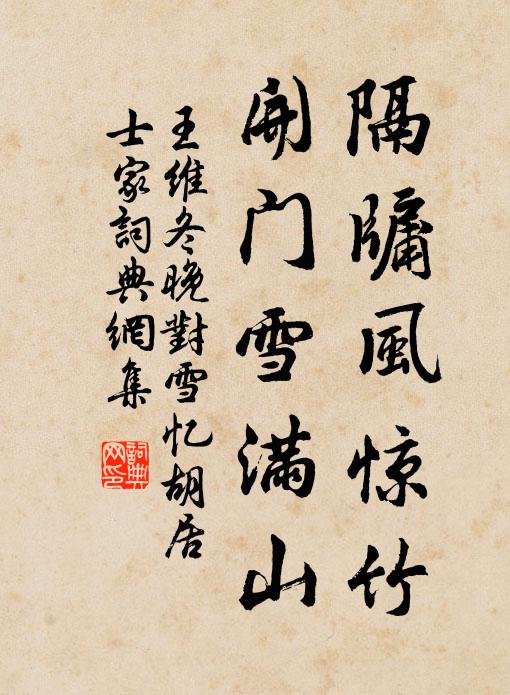 隔牖風惊竹
開门雪满山
王维冬晚對雪忆胡居
士家詞典網集
詞典
网印